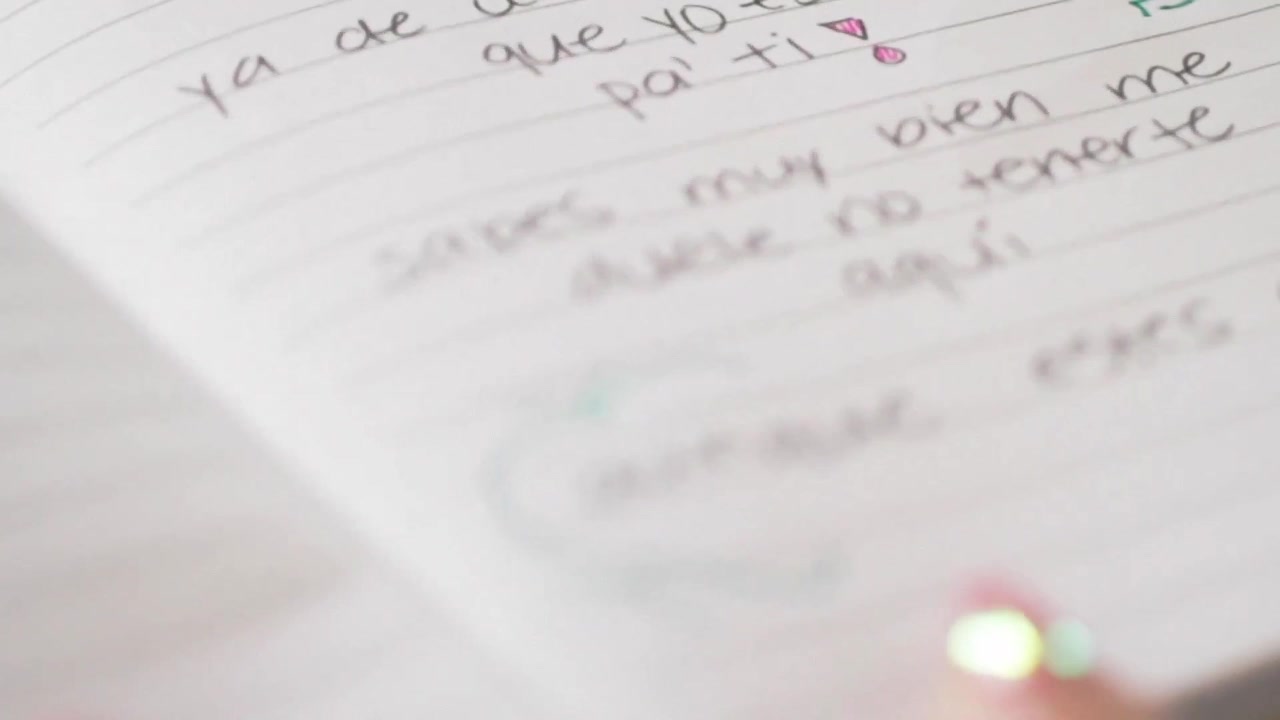 ya de
que yo
pa' ti!
sabes muy bien me
duele no tenerte
aquí
eres